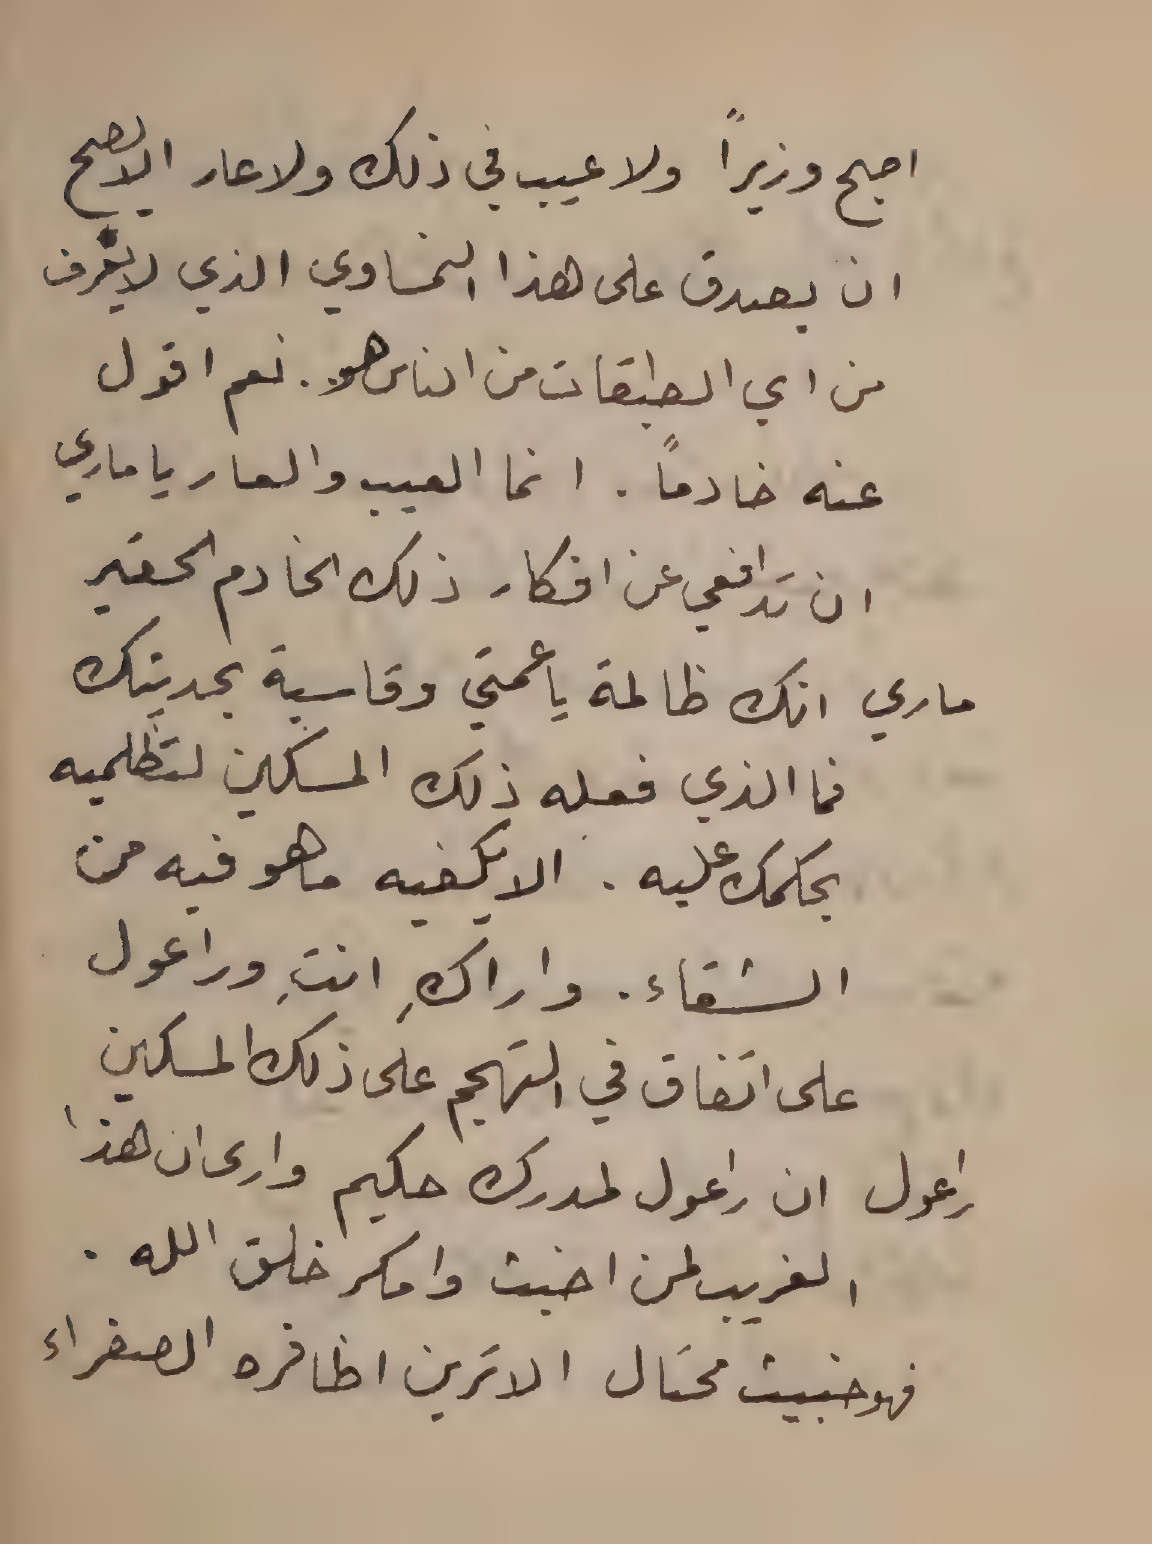 اصبح وزيراً ولا عيب في ذلك ولا عار الا يصح
ان يصدق على هذا النمساوي الذي لا يعرف
من اي الطبقات من الناس هو.. نعم اقول
عنه خادماً . انما العيب والعار يا ماري
ان تدافعي عن افكار ذلك الخادم الحقير
ماري انك ظالمة يا عمتي وقاسية بحديثك
فما الذي فعله ذلك المسكين لتظلميه
بحكمك عليه . الا يكفيه ما هو فيه من
الشقاء . واراكِ انتِ وراعول
على اتفاق في التهجم على ذلك المسكين
راعول ان راعول لمدرك حكيم وارى ان هذا
الغريب لمن اخبث وامكر خلق الله .
فهو خبيث محتال الا ترين اظافره الصفراء